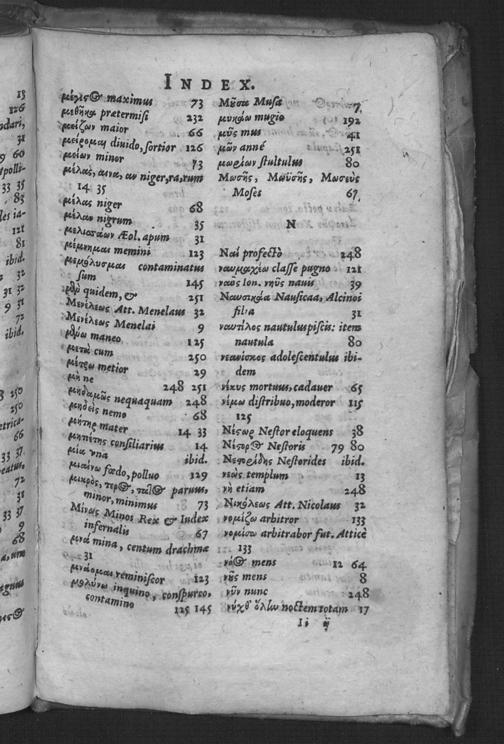 INDEX.
μέγιστ maximus 73
μεθῆκα prætermisi 232
μείζων maior 66
μείρομαι diuido, sortior 126
μείων minor 73
μέλας, αινα, αν niger, ra, rum
14 35
μέλας niger 68
μέλαν nigrum 35
μελισσάων Æol. apum 31
μέμνημαι memini 123
μεμόλυσμαι contaminatus
sum 145
μὲν quidem, & 251
Μενέλεως Att. Menelaus 32
Μενέλεως Menelai 9
μένω maneo 125
μετὰ cum 250
μέτρεω metior 29
μὴ ne 248 251
μηδαμῶς nequaquam 248
μηδεὶς nemo 68
μήτηρ mater 14 33
μητιέτης consiliarius 14
μία vna ibid.
μιαίνω fœdo, polluo 129
μικρὸς, τερος, τατος paruus,
minor, minimus 73
Μίνως Minos Rex & Iudex
infernalis 67
μνᾶ mina, centum drachmæ
31
μνάομαι reminiscor 123
μολύνω inquino, conspurco,
contamino 125 145
Μῦσα Musa 7
μυκάω mugio 192
μῦς mus 41
μῶν anné 251
μωρίων stultulus 80
Μωσῆς, Μωϋσῆς, Μωσεὺς
Moses 67
N
Ναὶ profectò 248
ναυμαχέω classe pugno 121
ναὸς Ion. νηῦς nauis 39
Ναυσικάα Nausicaa, Alcinoi
filia 31
ναυτίλος nautulus piscis: item
nautula 80
νεανίσκος adolescentulus ibi-
dem
νέκυς mortuus, cadauer 65
νέμω distribuo, moderor 115
125
Νέστωρ Nestor eloquens 38
Νέστορος Nestoris 79 80
Νεστορίδης Nestorides ibid.
νεὼς templum 13
νὴ etiam 248
Νικόλεως Att. Nicolaus 32
νομίζω arbitror 133
νομίσω arbitrabor fut. Atticè
133
νόος mens 12 64
νοῦς mens 8
νῦν nunc 248
νύχθ' ὅλην noctem totam 17
Ii ij
13
126
31
9 60
33 35
83
121
81
ibid.
32
31 32
9 31
72
ibid.
8 250
250
66
33 37
72
31
33 37
9
68